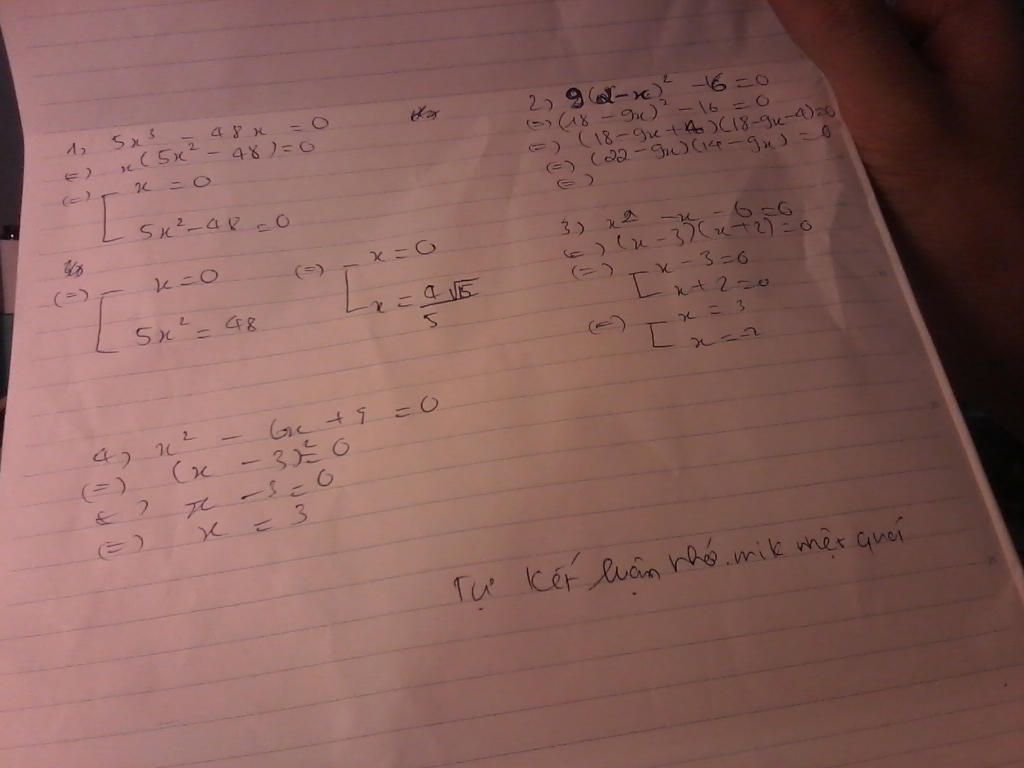 1, 5x³ - 48x = 0
(=) x(5x² - 48) = 0
(=) [ x = 0
5x² - 48 = 0
(=) [ x = 0
5x² = 48
(=) [ x = 0
x = 4√15/5
2, 9(2-x)² - 16 = 0
(=) (18 - 9x)² - 16 = 0
(=) (18 - 9x + 4)(18 - 9x - 4) = 0
(=) (22 - 9x)(14 - 9x) = 0
(=)
3, x² - x - 6 = 0
(=) (x - 3)(x + 2) = 0
(=) [ x - 3 = 0
x + 2 = 0
(=) [ x = 3
x = -2
4, x² - 6x + 9 = 0
(=) (x - 3)² = 0
(=) x - 3 = 0
(=) x = 3
Tự kết luận nhó. mik mệt quá